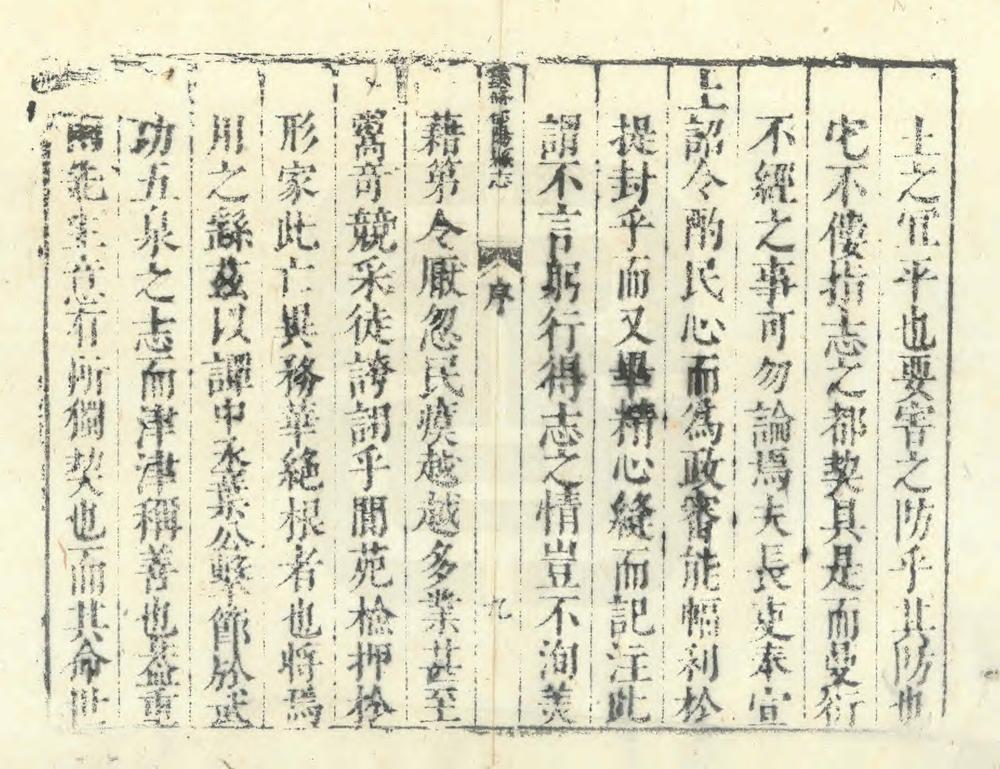 土之宜乎也要害之防乎其防也
宅不僂指志之都契具是而曼衍
不經之事可勿論焉夫長吏奉宣
上詔令酌民心而為政審能幅利於
提封乎而又畢精心縫而記注此
謂不言躬行得志之情豈不洵羙
重脩郃陽縣志 序 九
藉第令厭忽民瘼越越多業甚至
鶩竒競采徒誇詡乎聞苑檢押於
形家此亡異務華絶根者也將焉
用之繇茲以譚中丞葉公擊節於武
功五泉之志而津津稱善也葢重
兩先生意有所獨契也而其命世